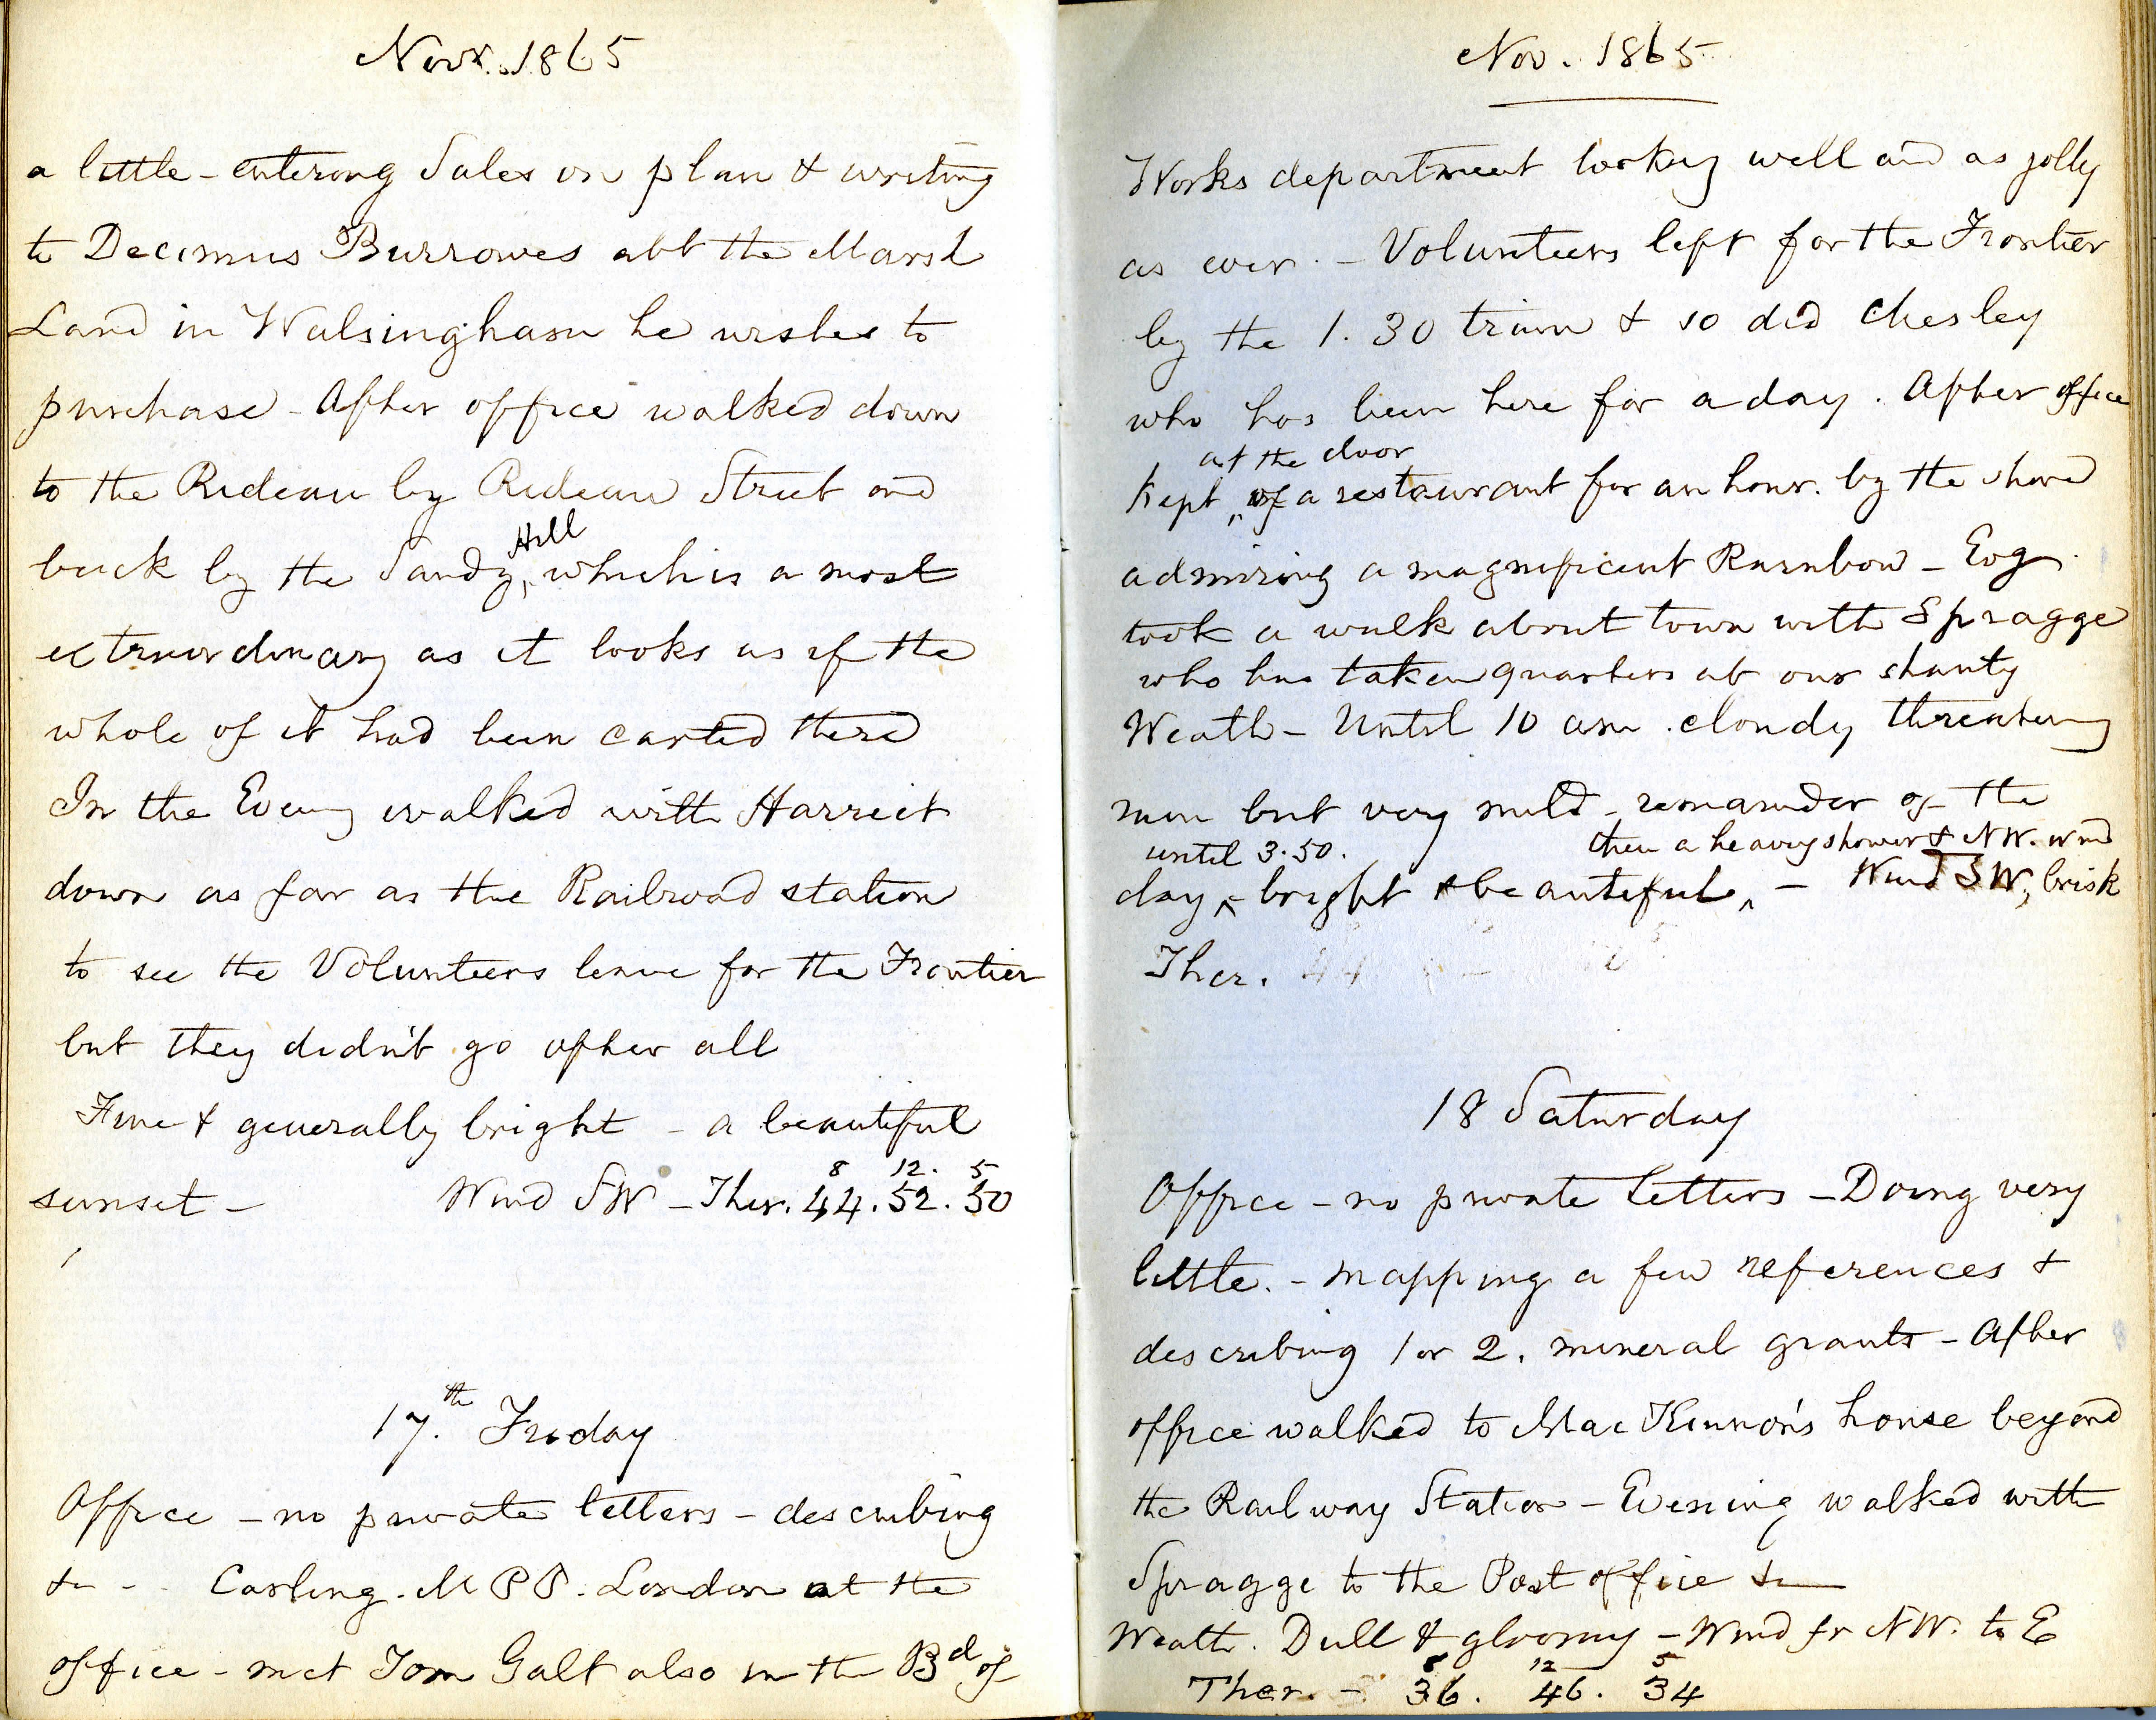 Novr. 1865
a little - entering Sales on plan & writing
to Decimus Burrowes abt the Marsh
Land in Walsingham he wishes to
purchase - After office walked down
to the Rideau by Rideau Street and
Hill
back by the Sandy, which is a most
extraordinary as it looks as if the
whole of it had been carted there
In the Eveng walked with Harriet
down as far as the Railroad station
to see the Volunteers leave for the Frontier
but they didn't go after all
Fine & generally bright - a beautiful
8 12. 5
sunset - Wind SW - Ther. 44. 52. 50
17.th Friday
Office - no private letters - describing
&c - Carling. M P P. London at the
office - met Tom Galt also in the Bd of
Nov. 1865
Works department looking well and as jolly
as ever. - Volunteers left for the Frontier
by the 1.30 train & so did Chesley
who has been here for a day. After office
at the door
Kept of a restaurant for an hour. by the
admiring a magnificent Rainbow - Evg
took a walk about town with Spragge
who has taken quarters at our shanty
Weath - Until 10 am. cloudy threatening
rain but very mild - remainder of the
until 3.50. then a heavy shower & NW. wind
day - bright & beautiful, - Wind SW, brisk
Ther.
18 Saturday
Office - no private letters - Doing very
little. - mapping a few references &
describing 1 or 2. mineral grants - After
office walked to MacKinnon's house beyond
the Railway Station - Evening walked with
Spragge to the Post office &c
Weath. Dull & gloomy - Wind fr NW. to E
8 12 5
Ther. - 36. 46. 34